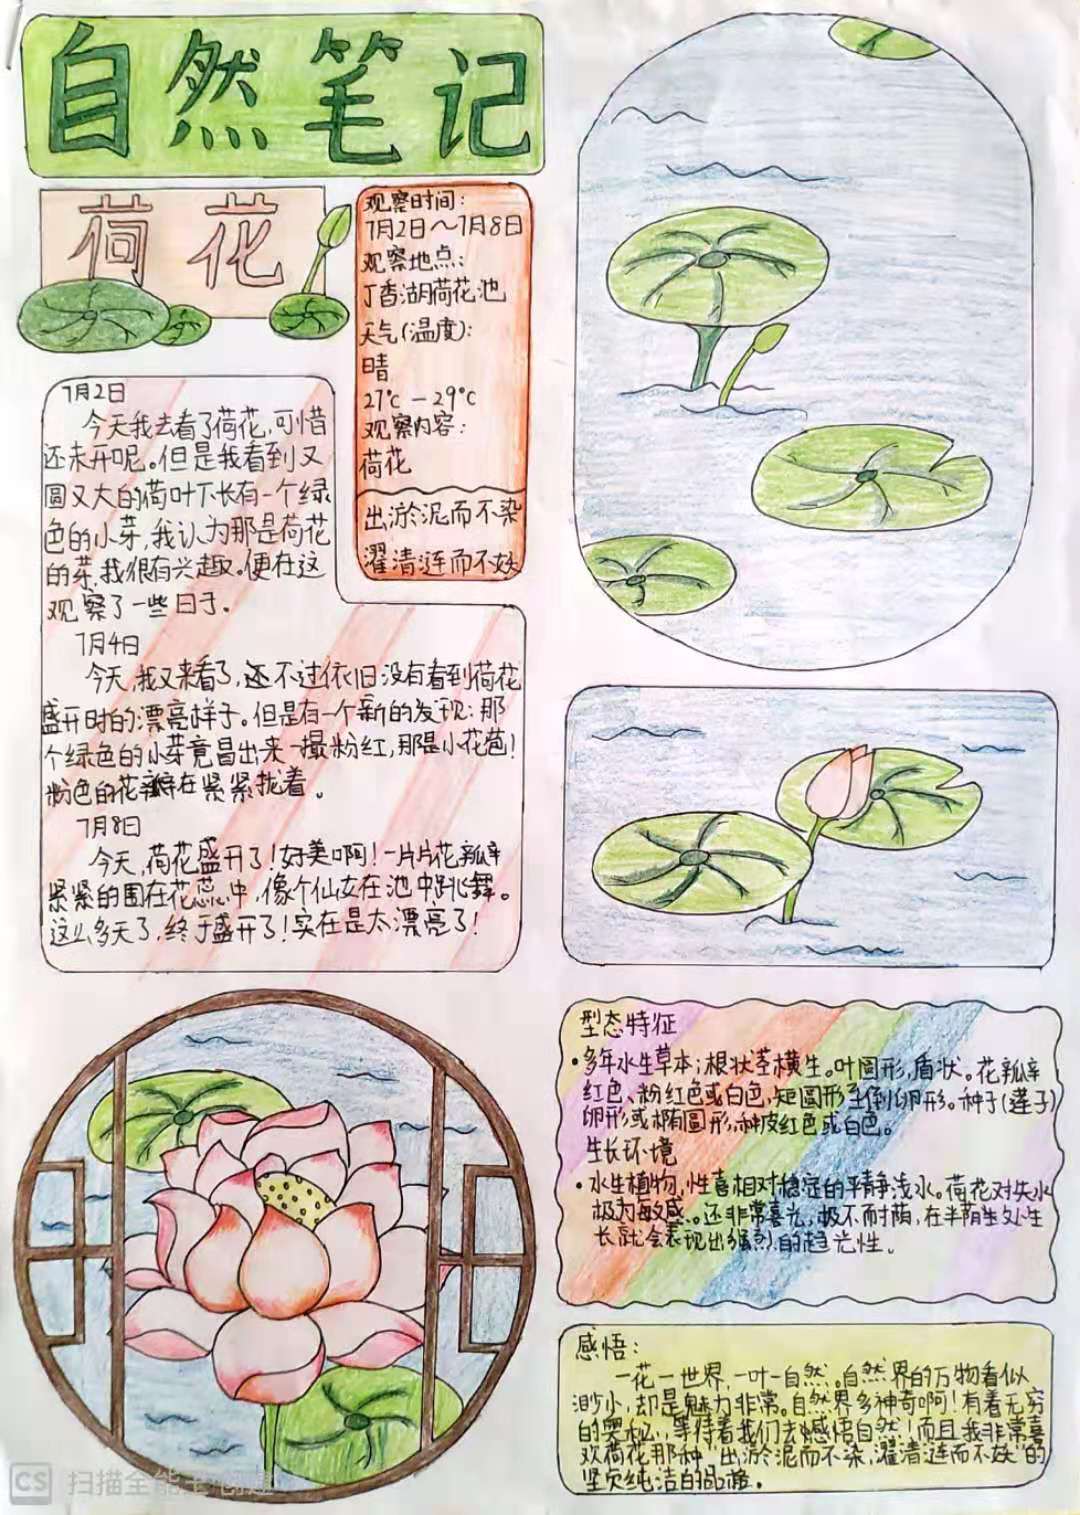 自然笔记
荷花
观察时间：
7月2日～7月8日
观察地点：
丁香湖荷花池
天气(温度)：
晴
27℃－29℃
观察内容：
荷花
出淤泥而不染
濯清涟而不妖
7月2日
今天我去看了荷花，可惜
还未开呢。但是我看到又
圆又大的荷叶下长有一个绿
色的小芽，我认为那是荷花
的芽，我很有兴趣。便在这
观察了一些日子。
7月4日
今天，我又来看了，还不过依旧没有看到荷花
盛开时的漂亮样子。但是有一个新的发现：那
个绿色的小芽竟冒出来一撮粉红，那是小花苞！
粉色的花瓣在紧紧拢着。
7月8日
今天，荷花盛开了！好美啊！一片片花瓣
紧紧的围在花蕊中，像个仙女在池中跳舞。
这么多天了，终于盛开了！实在是太漂亮了！
型态特征
•多年水生草本；根状茎横生。叶圆形，盾状。花瓣
红色、粉红色或白色，矩圆形至倒卵形。种子(莲子)
卵形或椭圆形，种皮红色或白色。
生长环境
•水生植物，性喜相对稳定的平静浅水。荷花对失水
极为敏感。还非常喜光，极不耐荫，在半荫生处生
长就会表现出强烈的趋光性。
感悟：
一花一世界，一叶一自然。自然界的万物看似
渺小，却是魅力非常。自然界多神奇啊！有着无穷
的奥秘，等待着我们去感悟自然！而且我非常喜
欢荷花那种“出淤泥而不染，濯清涟而不妖”的
坚贞纯洁的品格。
CS 扫描全能王 创建